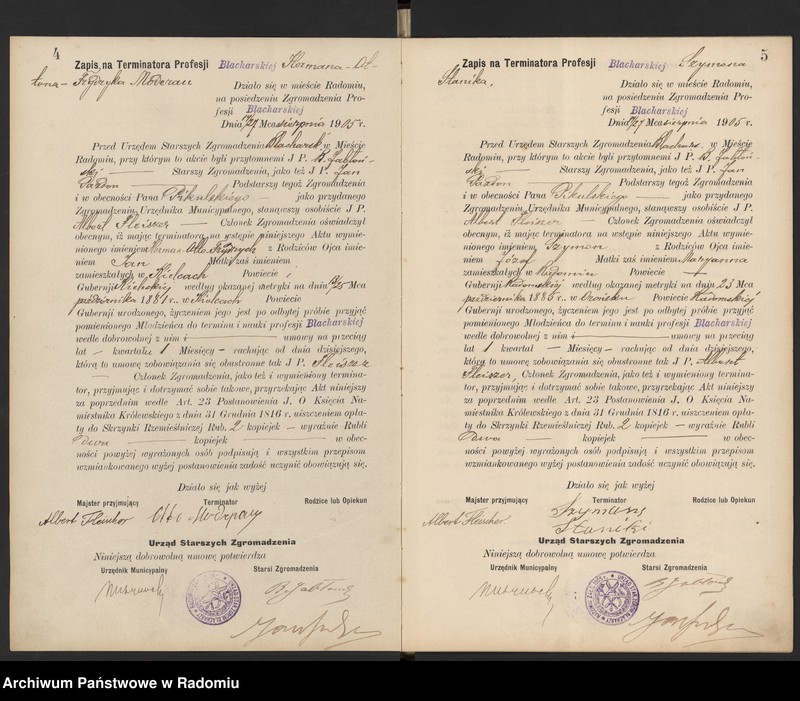 4
Zapis na Terminatora Profesji Blacharskiej Hermana-Ot-
tona-Frydryka Moderau
Działo się w mieście Radomiu,
na posiedzeniu Zgromadzenia Pro-
fesji Blacharskiej
Dnia 14/27 Mca sierpnia 1905 r.
Przed Urzędem Starszych Zgromadzenia Blacharsk. w Mieście
Radomiu, przy którym to akcie byli przytomnemi J P. B. Jabłoń-
ski Starszy Zgromadzenia, jako też J P. Jan
Podstarszy tegoż Zgromadzenia
i w obecności Pana Pikulskiego jako przydanego
Zgromadzeniu Urzędnika Municypalnego, stanąwszy osobiście J P.
Albert Fleiszer Członek Zgromadzenia oświadczył
obecnym, iż mając terminatora na wstępie niniejszego Aktu wymie-
nionego imieniem Herman Otto Frydrych z Rodziców Ojca imie-
niem Jan Matki zaś imieniem
zamieszkałych w Kielcach Powiecie
Gubernji Kieleckiej według okazanej metryki na dniu Mca
października 1881 r. w Kielcach Powiecie
Gubernji urodzonego, życzeniem jego jest po odbytej próbie przyjąć
pomienionego Młodzieńca do terminu i nauki profesji Blacharskiej
wedle dobrowolnej z nim i umowy na przeciąg
lat — kwartału 1 Miesięcy — rachując od dnia dzisiejszego,
którą to umowę zobowiązania się obustronne tak J P. Fleiszer
— Członek Zgromadzenia, jako też i wymieniony termina-
tor, przyjmując i dotrzymać sobie takowe, przyrzekając Akt niniejszy
za poprzednim wedle Art. 23 Postanowienia J. O Księcia Na-
miestnika Królewskiego z dnia 31 Grudnia 1816 r. uiszczeniem opła-
ty do Skrzynki Rzemieślniczej Rub. 2 kopiejek — wyraźnie Rubli
Dwa kopiejek w obec-
ności powyżej wyrażonych osób podpisują i wszystkim przepisom
wzmiankowanego wyżej postanowienia zadość uczynić obowiązują się.
Działo się jak wyżej
Majster przyjmujący Terminator Rodzice lub Opiekun
Albert Fleischer Otto Moderau
Urząd Starszych Zgromadzenia
Niniejszą dobrowolną umowę potwierdza
Urzędnik Municypalny Starsi Zgromadzenia
B. Jabłoński
5
Zapis na Terminatora Profesji Blacharskiej Szymona
Stanika.
Działo się w mieście Radomiu,
na posiedzeniu Zgromadzenia Pro-
fesji Blacharskiej
Dnia 14/27 Mca sierpnia 1905 r.
Przed Urzędem Starszych Zgromadzenia Blachars. w Mieście
Radomiu, przy którym to akcie byli przytomnemi J P. B. Jabłoń-
ski Starszy Zgromadzenia, jako też J P. Jan
Podstarszy tegoż Zgromadzenia
i w obecności Pana Pikulskiego jako przydanego
Zgromadzeniu Urzędnika Municypalnego, stanąwszy osobiście J P.
Albert Fleiszer Członek Zgromadzenia oświadczył
obecnym, iż mając terminatora na wstępie niniejszego Aktu wymie-
nionego imieniem Szymon z Rodziców Ojca imie-
niem Józef Matki zaś imieniem Maryanna
zamieszkałych w Radomiu Powiecie
Gubernji Radomskiej według okazanej metryki na dniu 23 Mca
października 1886 r. w Powiecie Radomskiej
Gubernji urodzonego, życzeniem jego jest po odbytej próbie przyjąć
pomienionego Młodzieńca do terminu i nauki profesji Blacharskiej
wedle dobrowolnej z nim i umowy na przeciąg
lat 1 kwartał — Miesięcy — rachując od dnia dzisiejszego,
którą to umowę zobowiązania się obustronne tak J P. Albert
Fleiszer, Członek Zgromadzenia, jako też i wymieniony termina-
tor, przyjmując i dotrzymać sobie takowe, przyrzekając Akt niniejszy
za poprzednim wedle Art. 23 Postanowienia J. O Księcia Na-
miestnika Królewskiego z dnia 31 Grudnia 1816 r. uiszczeniem opła-
ty do Skrzynki Rzemieślniczej Rub. 2 kopiejek — wyraźnie Rubli
Dwa kopiejek w obec-
ności powyżej wyrażonych osób podpisują i wszystkim przepisom
wzmiankowanego wyżej postanowienia zadość uczynić obowiązują się.
Działo się jak wyżej
Majster przyjmujący Terminator Rodzice lub Opiekun
Albert Fleischer Szyman
Stanik
Urząd Starszych Zgromadzenia
Niniejszą dobrowolną umowę potwierdza
Urzędnik Municypalny Starsi Zgromadzenia
B. Jabłoński
Archiwum Państwowe w Radomiu